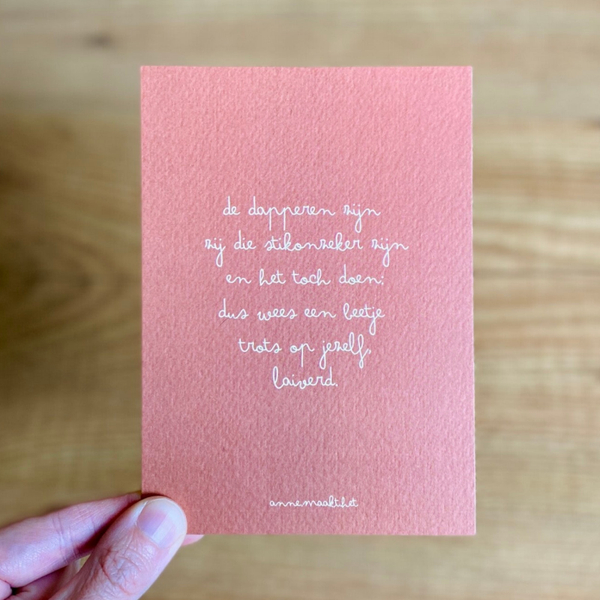 de dapperen zijn
zij die stikonzeker zijn
en het toch doen;
dus wees een beetje
trots op jezelf,
laiverd.
annemaakthet